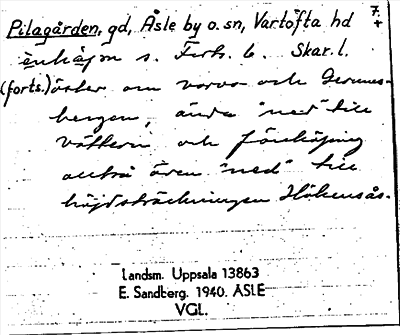 Pilagården, gd, Åsle by o. sn, Vartofta hd
7.
+
s. Ferb. 6. Skar. l.
(forts.) öster om varvo och Gerums-
bergen, ända "ned" till
vättern och Jönköping
alltså även "ned" till
höjdsträckningen Hökensås.
Landsm. Uppsala 13863
E. Sandberg. 1940. ÅSLE
VGL.